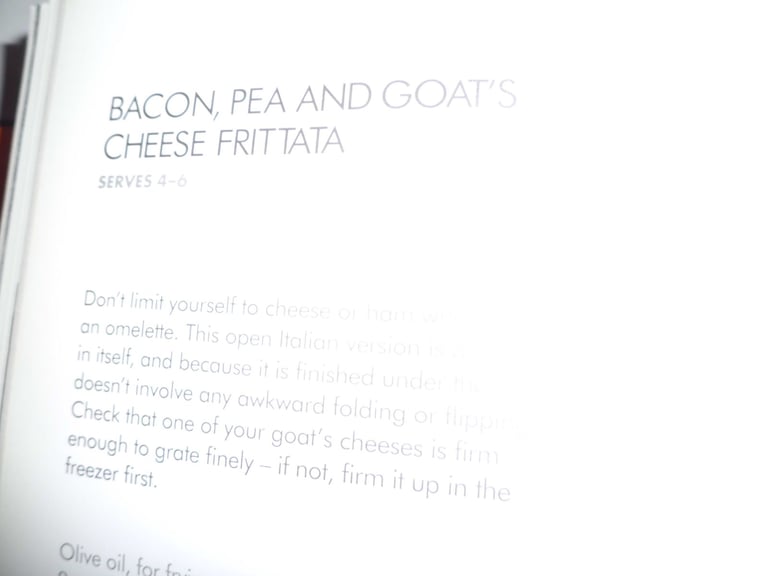 BACON, PEA AND GOAT'S
CHEESE FRITTATA
SERVES 4–6
Don't limit yourself to cheese or ham
an omelette. This open Italian version is
in itself, and because it is finished under
doesn't involve any awkward folding or
Check that one of your goat's cheeses is firm
enough to grate finely – if not, firm it up in the
freezer first.
Olive oil, for